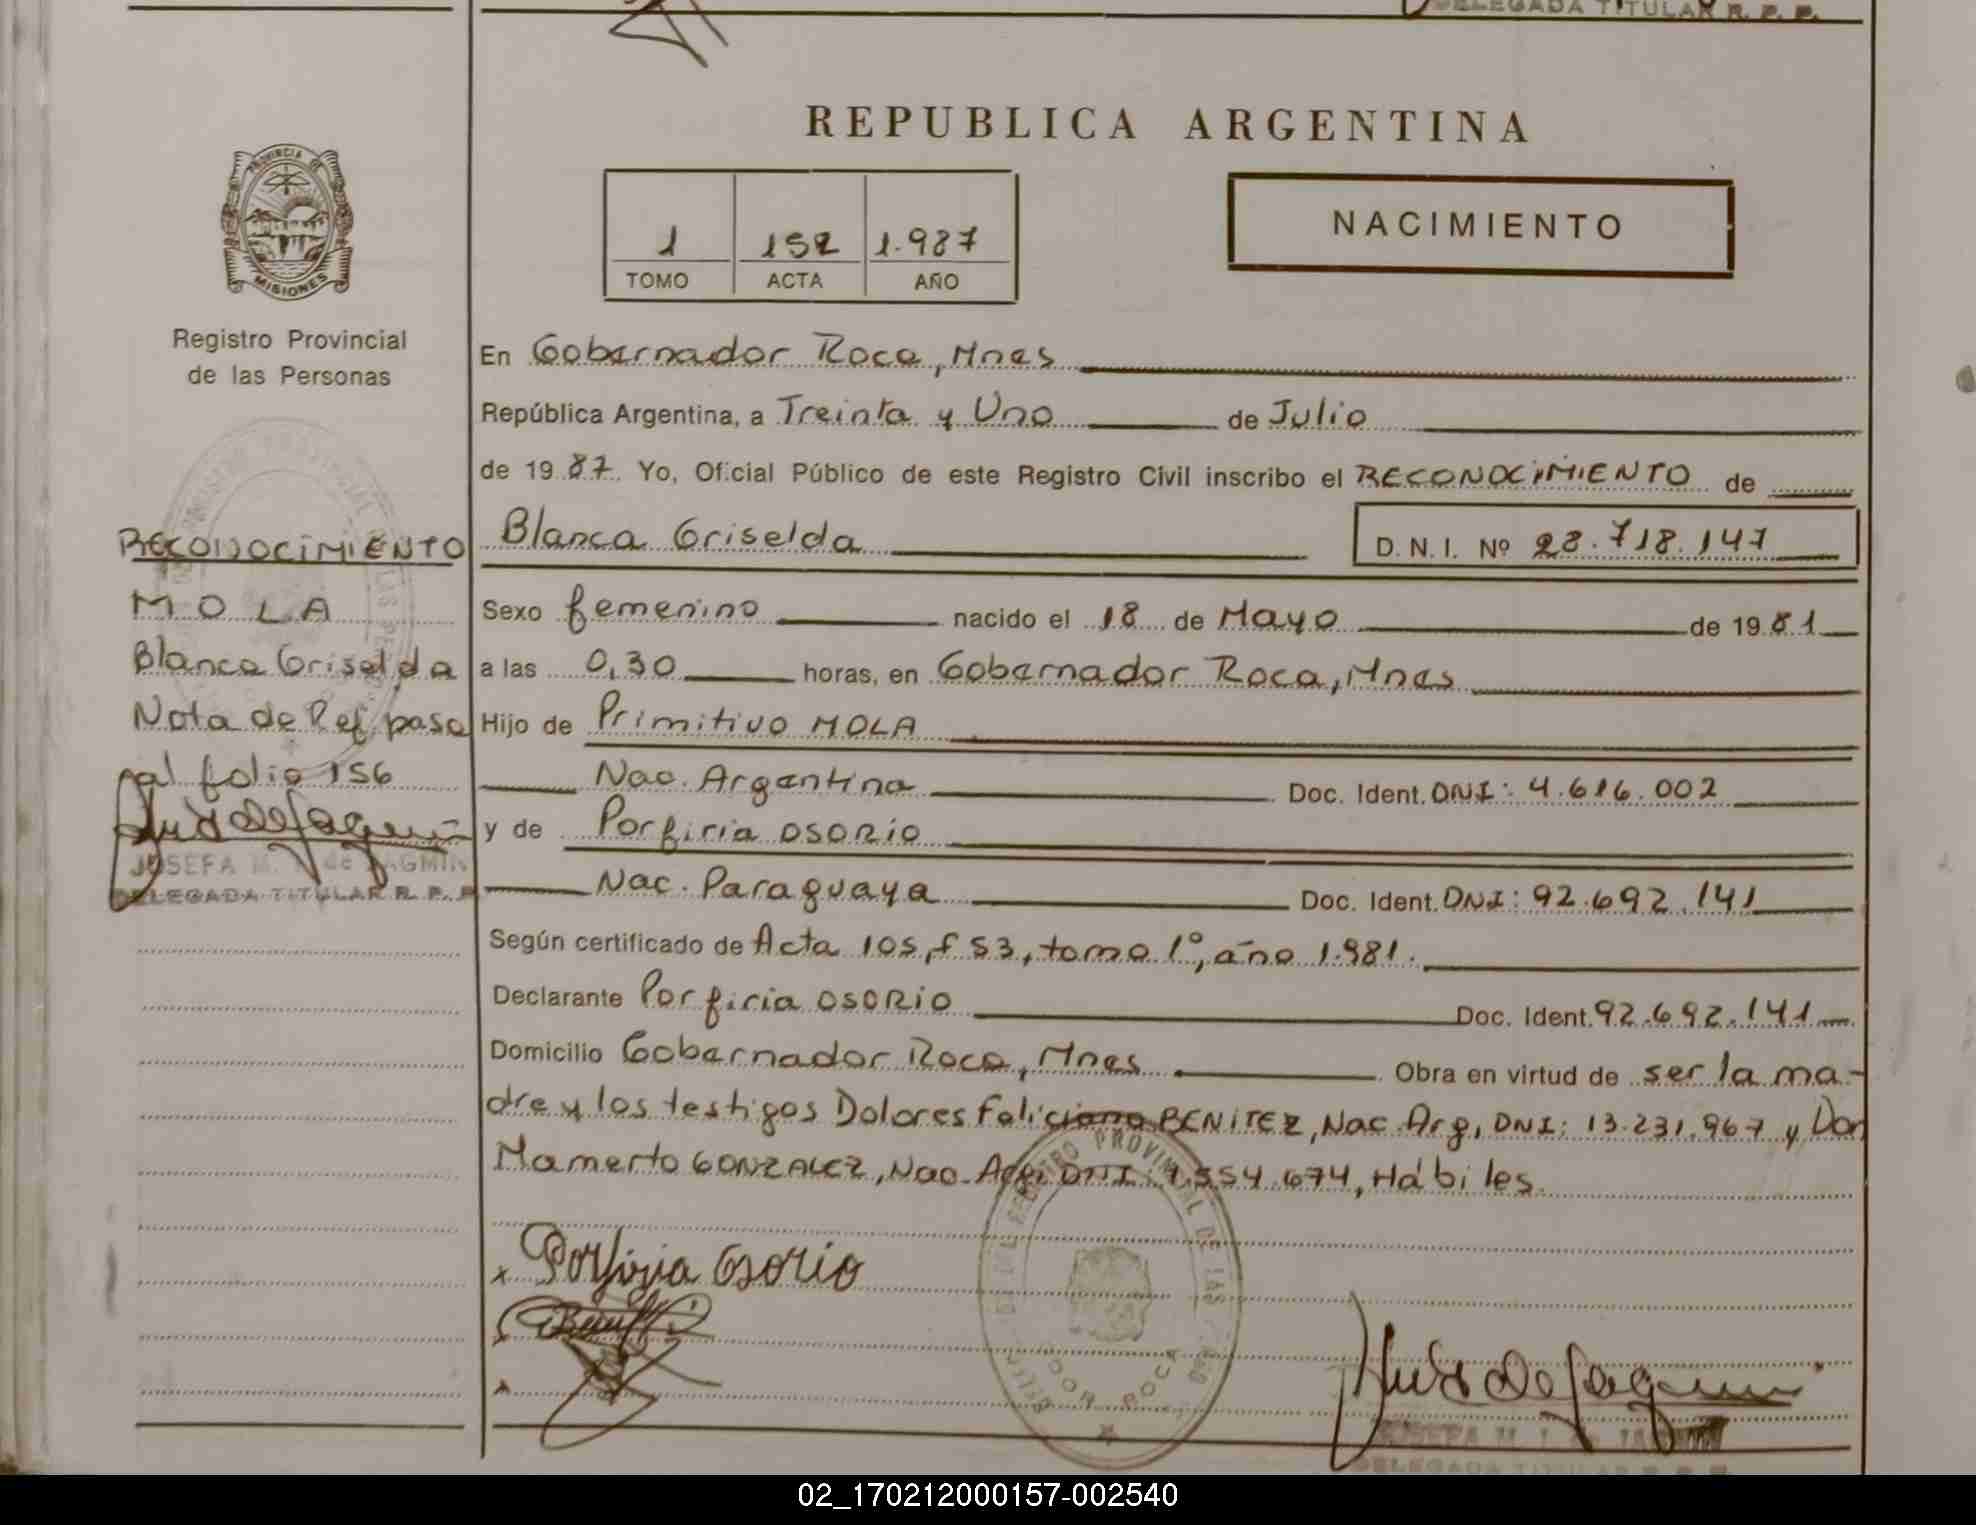 DELEGADA TITULAR R. P. P.
REPUBLICA ARGENTINA
PROVINCIA DE
MISIONES
1 152 1.987
TOMO ACTA AÑO
NACIMIENTO
Registro Provincial
de las Personas
En Gobernador Roca, Mnes
República Argentina, a Treinta y Uno de Julio
de 19 87. Yo, Oficial Público de este Registro Civil inscribo el RECONOCIMIENTO de
Blanca Griselda D. N. I. Nº 28.718.147
Sexo femenino nacido el 18 de Mayo de 19 81
a las 0,30 horas, en Gobernador Roca, Mnes
Hijo de Primitivo MOLA
Nac. Argentina Doc. Ident. DNI: 4.616.002
y de Porfiria OSORIO
Nac. Paraguaya Doc. Ident. DNI: 92.692.141
Según certificado de Acta 105, f 53, tomo 1º, año 1.981.
Declarante Porfiria OSORIO Doc. Ident. 92.692.141
Domicilio Gobernador Roca, Mnes Obra en virtud de ser la ma-
dre y los testigos Dolores Feliciano BENITEZ, Nac. Arg, DNI: 13.231.967 y Don
Mamerto GONZALEZ, Nac. Arg. DNI: 7.554.674, Hábiles.
x Porfiria Osorio
x
x
RECONOCIMIENTO
MOLA
Blanca Griselda
Nota de Ref. pasa
al folio 156
JOSEFA M. de JAGMIN
DELEGADA TITULAR R. P. P.
REGISTRO PROVINCIAL DE LAS
ROCA
JOSEFA M. J. de
DELEGADA TITULAR R. P. P.
02_170212000157-002540